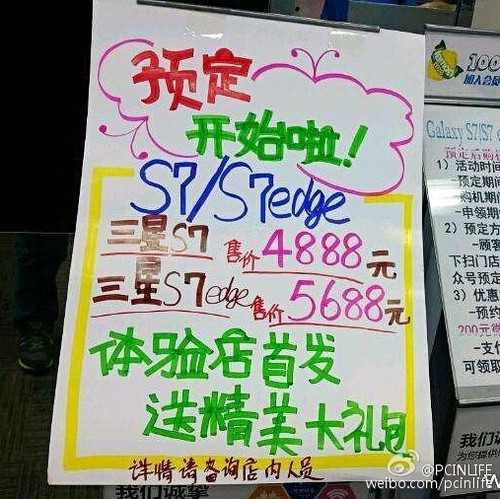 预定
开始啦！
S7/S7edge
三星S7 售价4888元
三星S7edge 售价5688元
体验店首发
送精美大礼包
详情请咨询店内人员
100
加入会员
Galaxy S7/S7
预定后购机
1）活动时间
-预定期间
购机期间
-申领期
2）预定方
-顾客
下扫门店
众号预定
3）优惠
-预约
200元
-支付
可领取
我们诚
为您提供
我们诚挚
@PCINLIFE
weibo.com/pcinlife